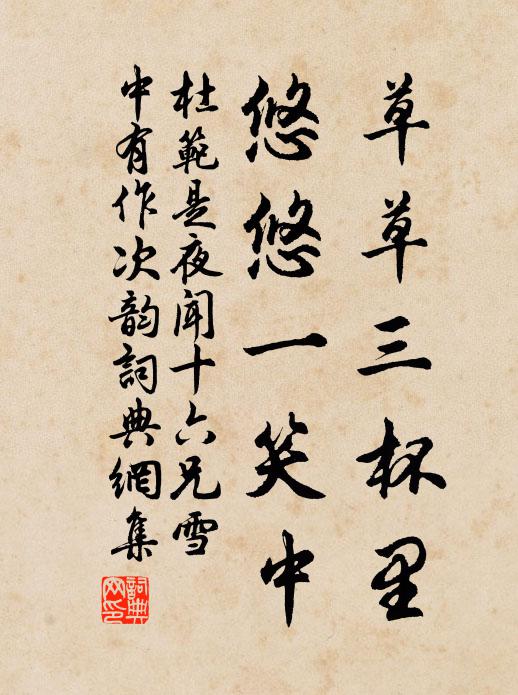 草草三杯里
悠悠一笑中
杜範是夜闻十六兄雪
中有作次韵詞典網集
詞典
网印